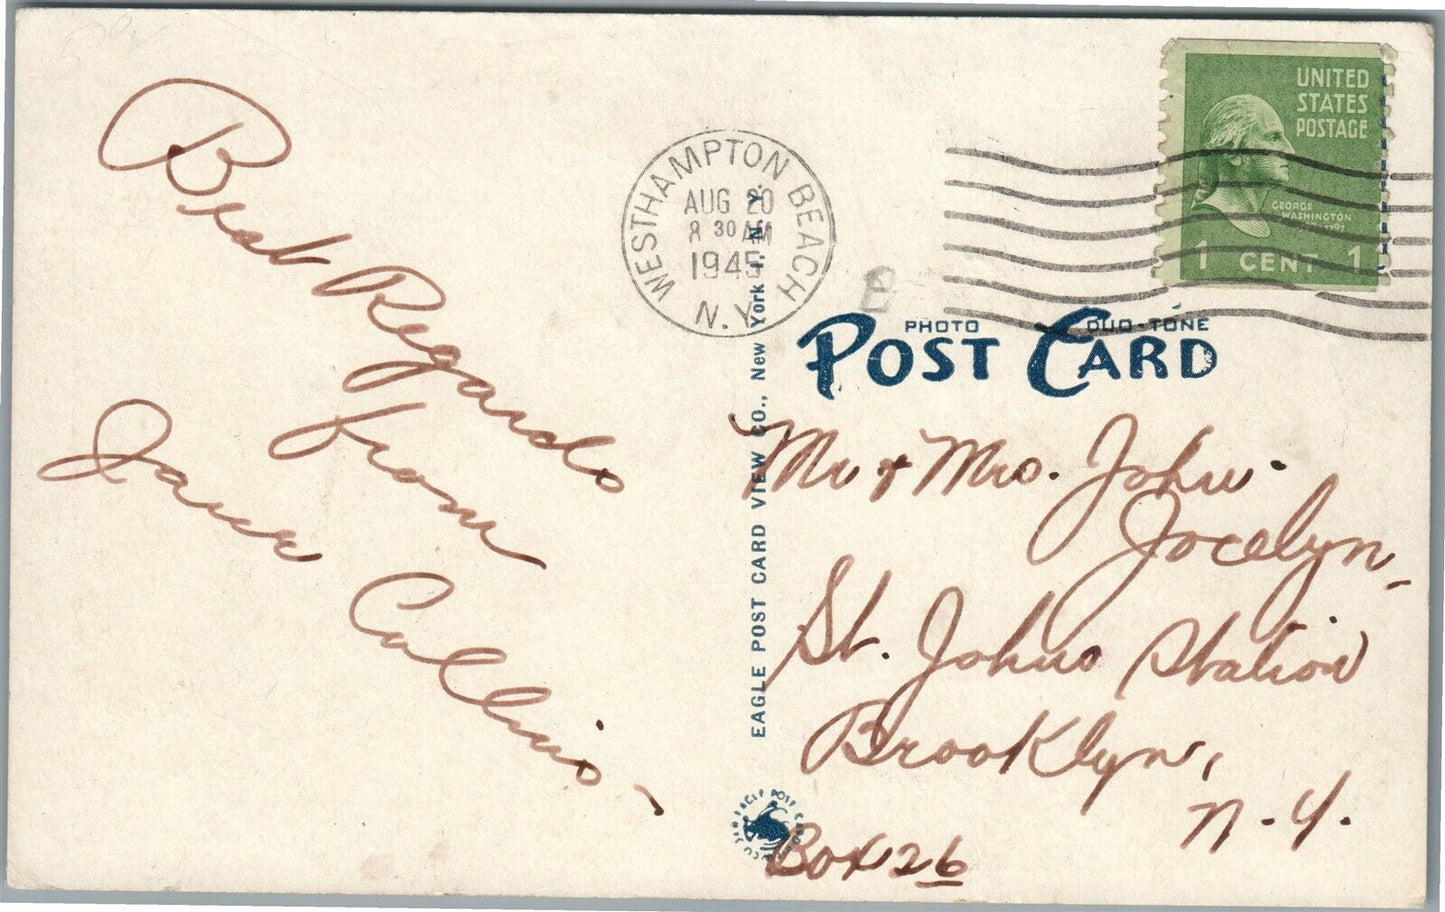 Best Regards
from
Jane Collins -
WESTHAMPTON BEACH
AUG 20
8 30 AM
1945
N.Y.
UNITED
STATES
POSTAGE
GEORGE
WASHINGTON
1 CENT 1
PHOTO DUO-TONE
POST CARD
EAGLE POST CARD VIEW CO., New York 1, N. Y.
Mr & Mrs. John
Jocelyn,
St. Johns Station
Brooklyn,
N.Y.
Box 26